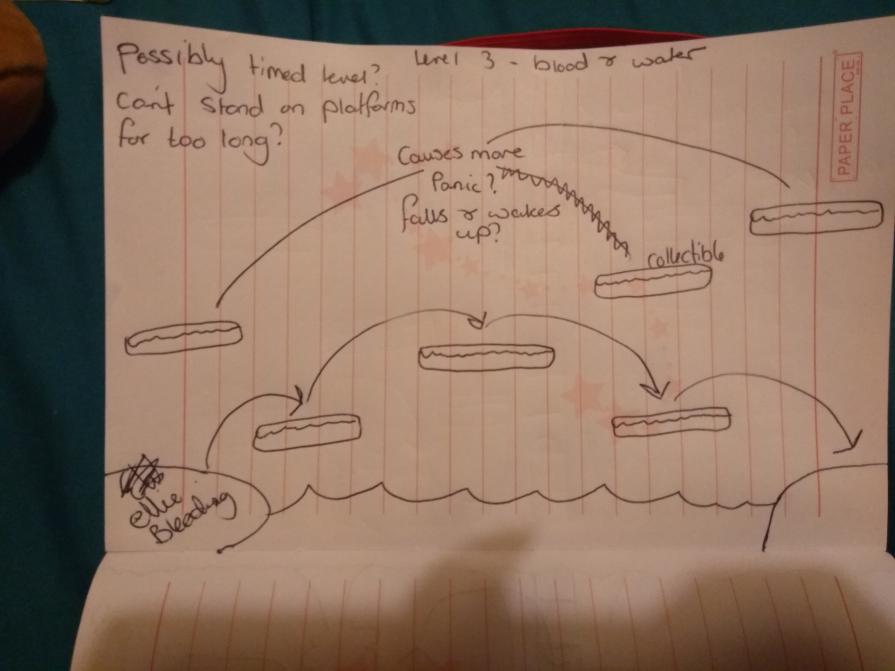 Possibly timed level?
Can't stand on platforms
for too long?
Level 3 - blood & water
PAPER PLACE
Causes more
Panic?
falls & wakes
up?
collectible
ellie
Bleeding